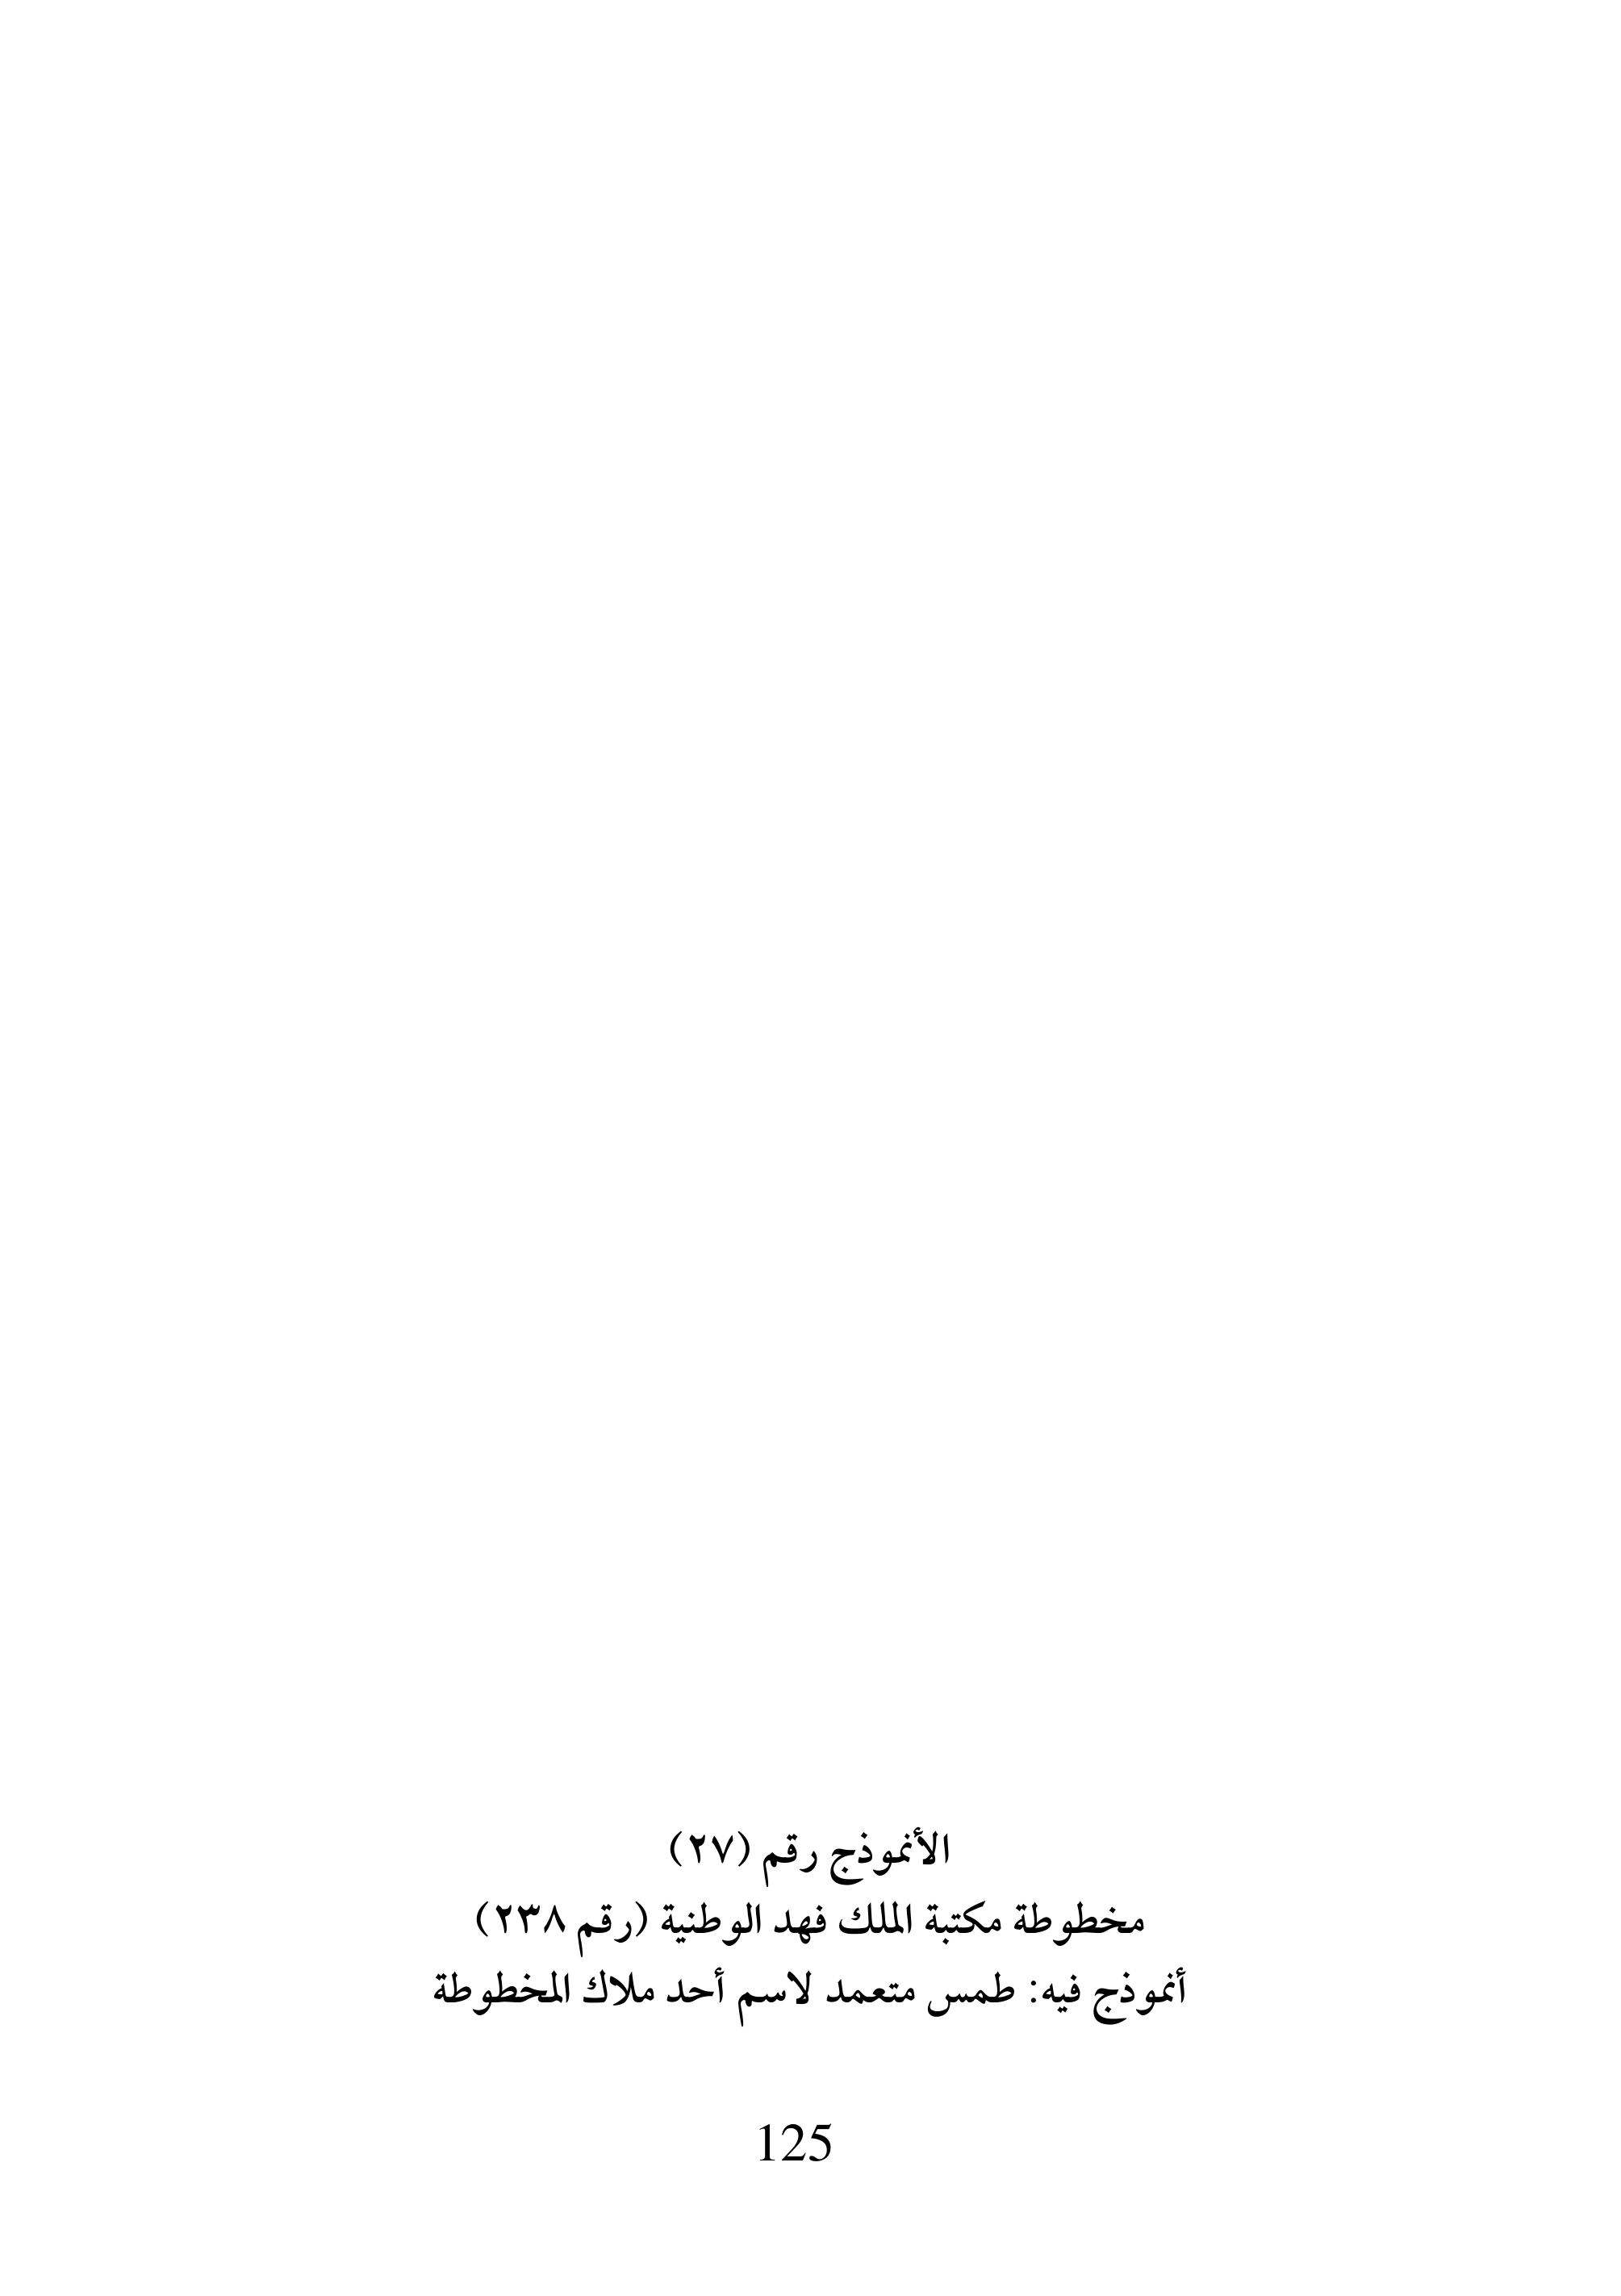 الأنموذج رقم (٢٧)
مخطوطة مكتبة الملك فهد الوطنية (رقم ٢٣٨)
أنموذج فيه: طمس متعمد لاسم أحد ملاك المخطوطة
125